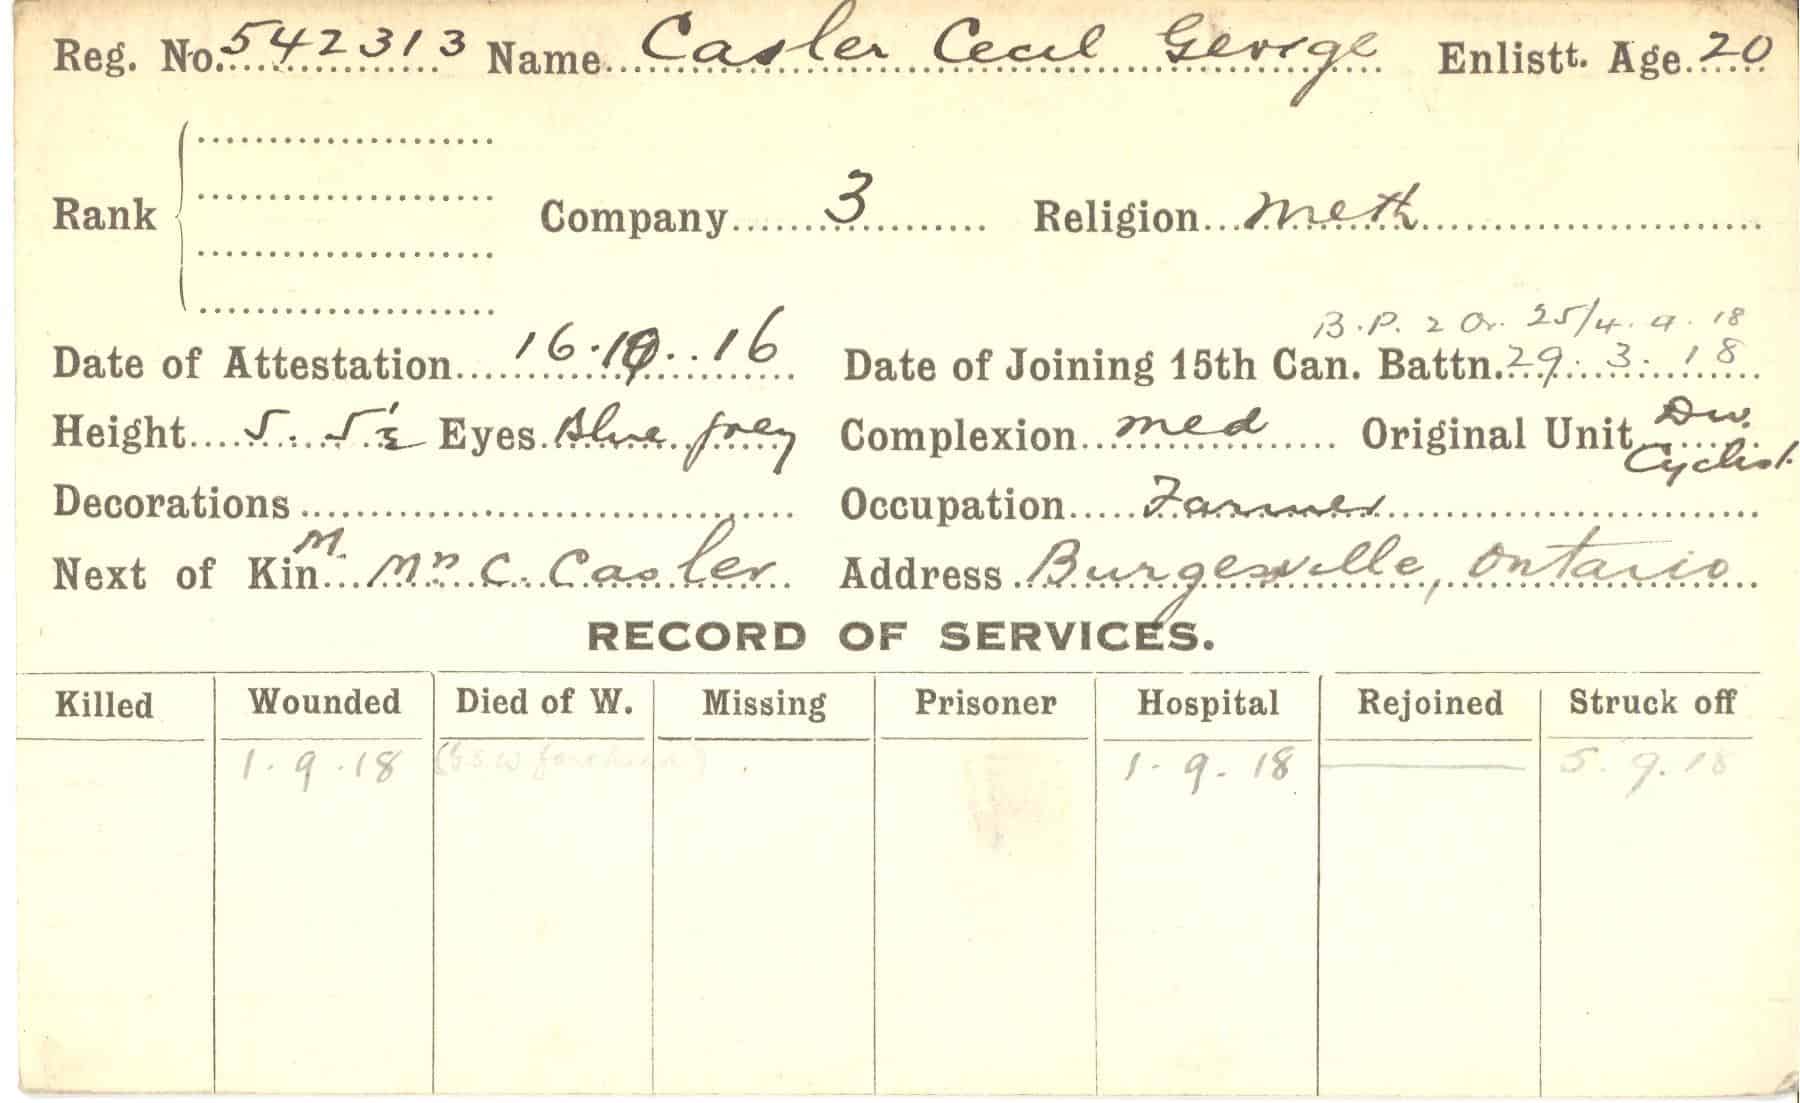 Reg. No. 542313 Name Casler Cecil George Enlistt. Age 20
Rank Company 3 Religion Meth
B.P. 2 Or. 25/4.9.18
Date of Attestation 16.10.16 Date of Joining 15th Can. Battn. 29.3.18
Height 5.5½ Eyes Blue grey Complexion med Original Unit Div. Cyclist
Decorations Occupation Farmer
Next of Kin M. Mrs C. Casler Address Burgessville, Ontario
RECORD OF SERVICES.
Killed Wounded Died of W. Missing Prisoner Hospital Rejoined Struck off
1.9.18 (GSW forehead) 1.9.18 5.9.18